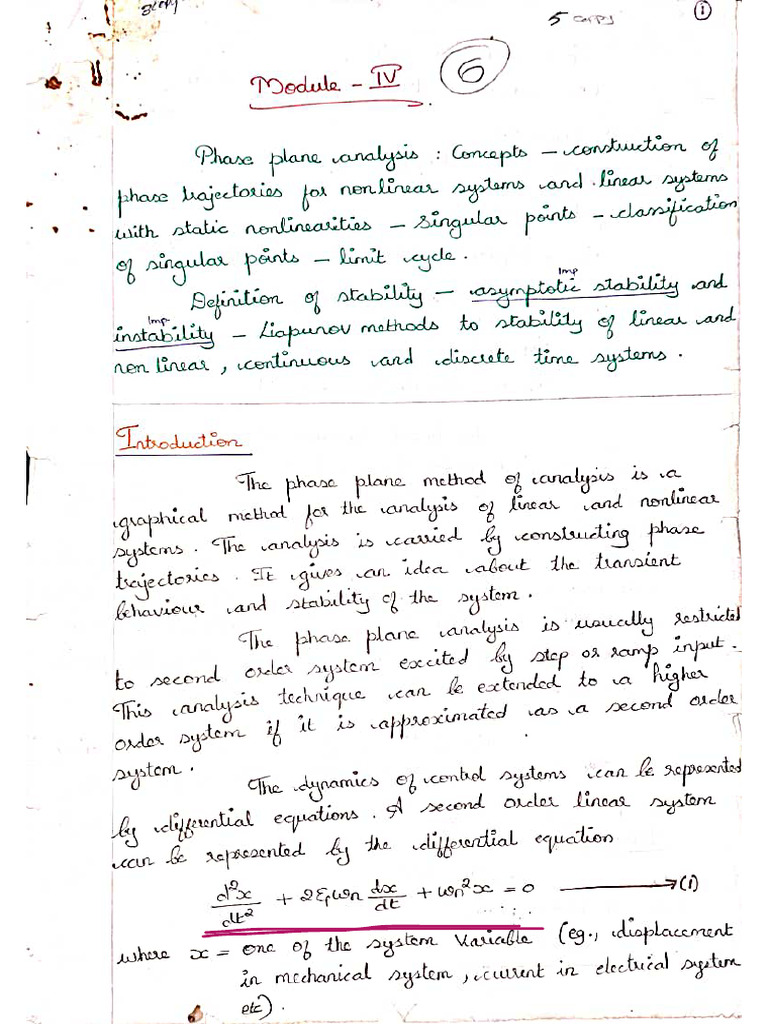 5 copy
①
Module - IV
6
Phase plane analysis : Concepts - construction of
phase trajectories for nonlinear systems and linear systems
with static nonlinearities - Singular points - classification
of singular points - limit cycle.
Imp
Definition of stability - asymptotic stability and
Imp
instability - Liapunov methods to stability of linear and
non linear, continuous and discrete time systems.
Introduction
The phase plane method of analysis is a
graphical method for the analysis of linear and nonlinear
systems. The analysis is carried by constructing phase
trajectories. It gives an idea about the transient
behaviour and stability of the system.
The phase plane analysis is usually restricted
to second order system excited by step or ramp input.
This analysis technique can be extended to a higher
order system if it is approximated as a second order
system.
The dynamics of control systems can be represented
by differential equations. A second order linear system
can be represented by the differential equation
d²x/dt² + 2ξωn dx/dt + ωn²x = 0 → (1)
where x = one of the system variable (eg., displacement
in mechanical system, current in electrical system
etc).